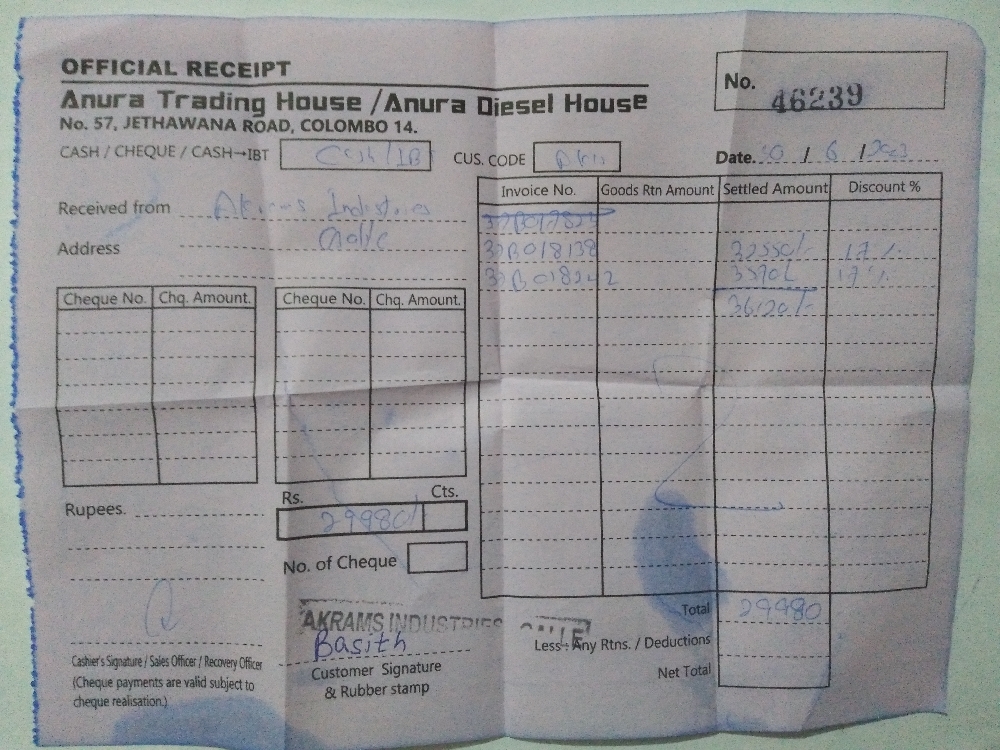 OFFICIAL RECEIPT
No. 46239
Anura Trading House / Anura Diesel House
No. 57, JETHAWANA ROAD, COLOMBO 14.
CASH / CHEQUE / CASH→IBT Cash/IB CUS. CODE Date. 6 /
Invoice No. Goods Rtn Amount Settled Amount Discount %
Received from Akrams
Address Galle
32B018138 32550/- 17%
3570/- 17%
36120/-
Cheque No. Chq. Amount. Cheque No. Chq. Amount.
Rupees.
Rs. Cts.
29980/
No. of Cheque
Total 29980
AKRAMS INDUSTRIES GALLE
Basith
Less: Any Rtns. / Deductions
Net Total
Cashier's Signature / Sales Officer / Recovery Officer
(Cheque payments are valid subject to
cheque realisation.)
Customer Signature
& Rubber stamp